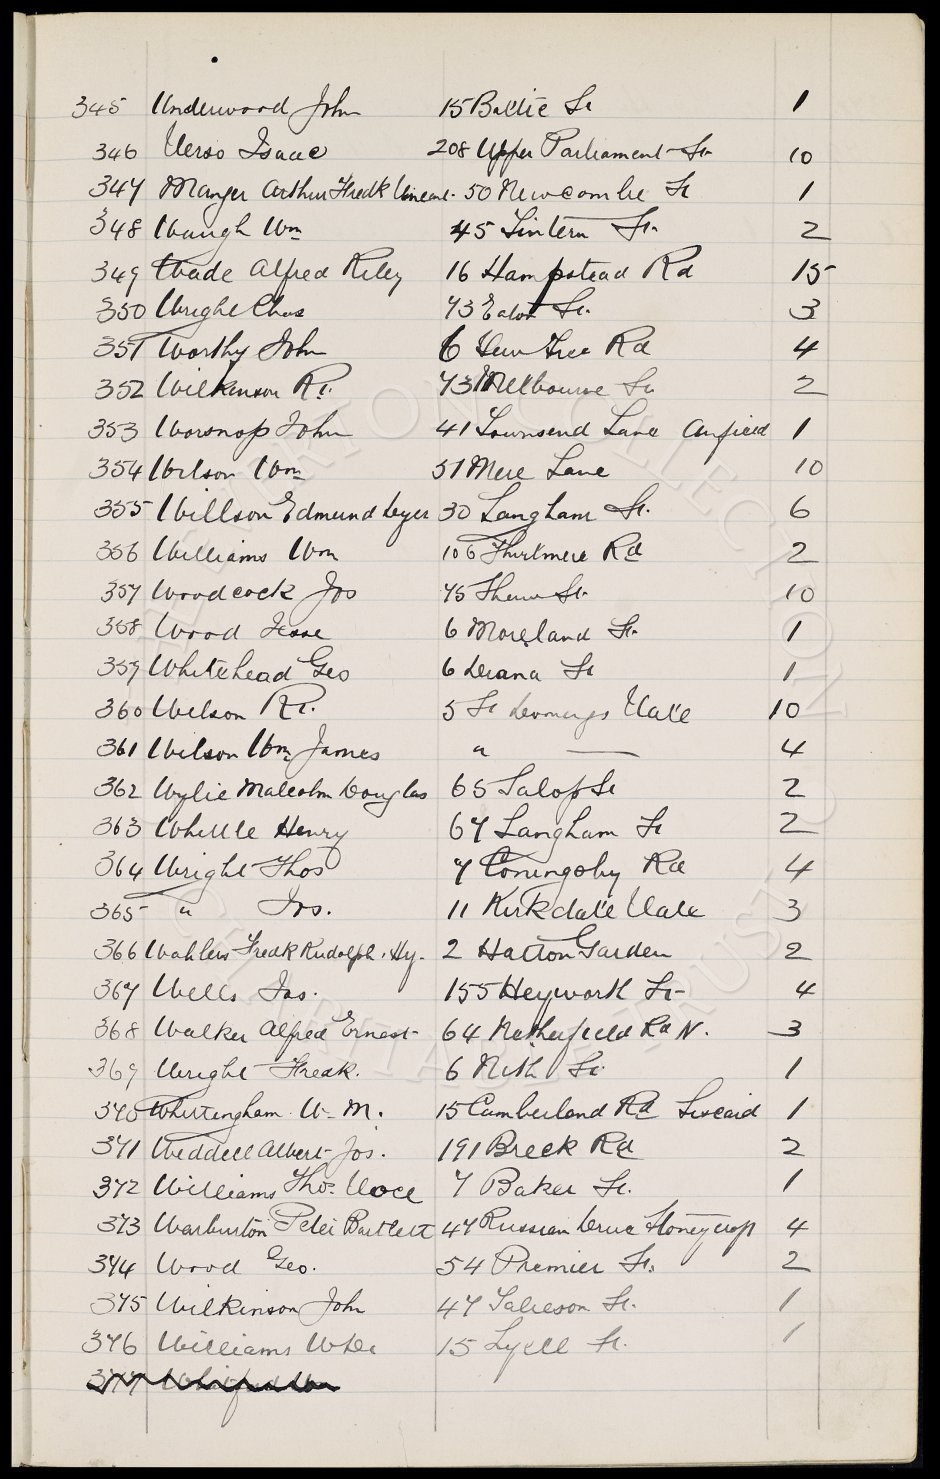 345 Underwood John 15 Baltic St 1
346 Verso Isaac 208 Upper Parliament St 10
347 Manger Arthur Fredk Vincent 50 Newcombe St 1
348 Waugh Wm 45 Tintern St. 2
349 Wade Alfred Riley 16 Hampstead Rd 15
350 Wright Chas 73 Eaton St. 3
351 Worthy John 6 Yew Tree Rd 4
352 Wilkinson Rt. 73 Melbourne St 2
353 Worsnop John 41 Townsend Lane Anfield 1
354 Wilson Wm 51 Mere Lane 10
355 Willson Edmund Dyer 30 Langham St. 6
356 Williams Wm 106 Thirlmere Rd 2
357 Woodcock Jos 75 St. 10
358 Wood Jesse 6 Moreland St. 1
359 Whitehead Geo 6 Diana St 1
360 Wilson Rt. 5 St Domingo Vale 10
361 Wilson Wm James " — 4
362 Wylie Malcolm Douglas 65 Salop St 2
363 Whittle Henry 67 Langham St 2
364 Wright Thos 7 Coningsby Rd 4
365 " Jos. 11 Kirkdale Vale 3
366 Wahlers Fredk Rudolph. Hy. 2 Hatton Garden 2
367 Wells Jas. 155 Heyworth St 4
368 Walker Alfred Ernest 64 Netherfield Rd N. 3
369 Wright Fredk. 6 Nith St. 1
370 Whittingham W. M. 15 Cumberland Rd Liscard 1
371 Weddell Albert Jos. 191 Breck Rd 2
372 Williams Thos. 7 Baker St. 1
373 Warburton Peter Bartlett 47 Russian Drive Stoneycroft 4
374 Wood Geo. 54 Premier St. 2
375 Wilkinson John 47 Salieson St. 1
376 Williams 15 Lyell St. 1
377